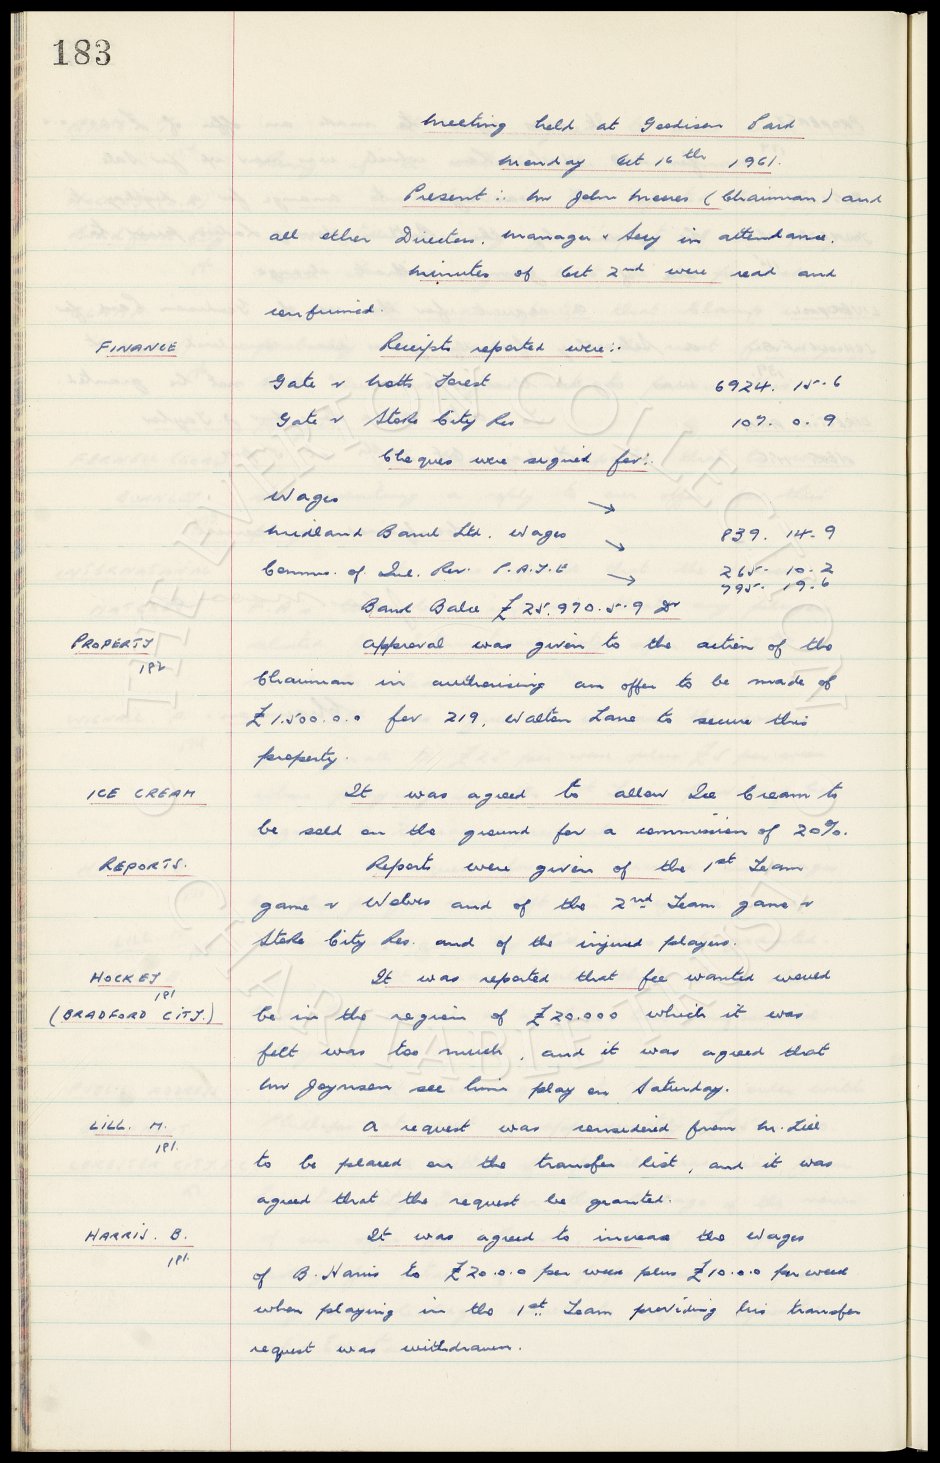 183
Meeting held at Goodison Park
Monday Oct 16th 1961.
Present :- Mr John Moores (Chairman) and
all other Directors. Manager & Secy in attendance.
Minutes of Oct 2nd were read and
confirmed.
FINANCE Receipts reported were :-
Gate v Notts Forest 6924. 15. 6
Gate v Stoke City Res 107. 0. 9
Cheques were signed for :-
Wages →
Midland Bank Ltd. Wages → 839. 14. 9
Comms. of Inl. Rev. P.A.Y.E → 265. 10. 2
795. 19. 6
Bank Balce £25,970. 5. 9 Dr
PROPERTY Approval was given to the action of the
182
Chairman in authorising an offer to be made of
£1.500. 0. 0 for 219, Walton Lane to secure this
property.
ICE CREAM It was agreed to allow Ice Cream to
be sold on the ground for a commission of 20%.
REPORTS. Reports were given of the 1st Team
game v Wolves and of the 2nd Team game v
Stoke City Res. and of the injured players.
HOCKEY It was reported that fee wanted would
181
(BRADFORD CITY.) be in the region of £20.000 which it was
felt was too much, and it was agreed that
Mr Joynson see him play on Saturday.
LILL. M. A request was considered from M. Lill
181.
to be placed on the transfer list, and it was
agreed that the request be granted.
HARRIS. B. It was agreed to increase the wages
181.
of B. Harris to £20. 0. 0 per week plus £10. 0. 0 per week
when playing in the 1st Team providing his transfer
request was withdrawn.
THE EVERTON COLLECTION
CHARITABLE TRUST